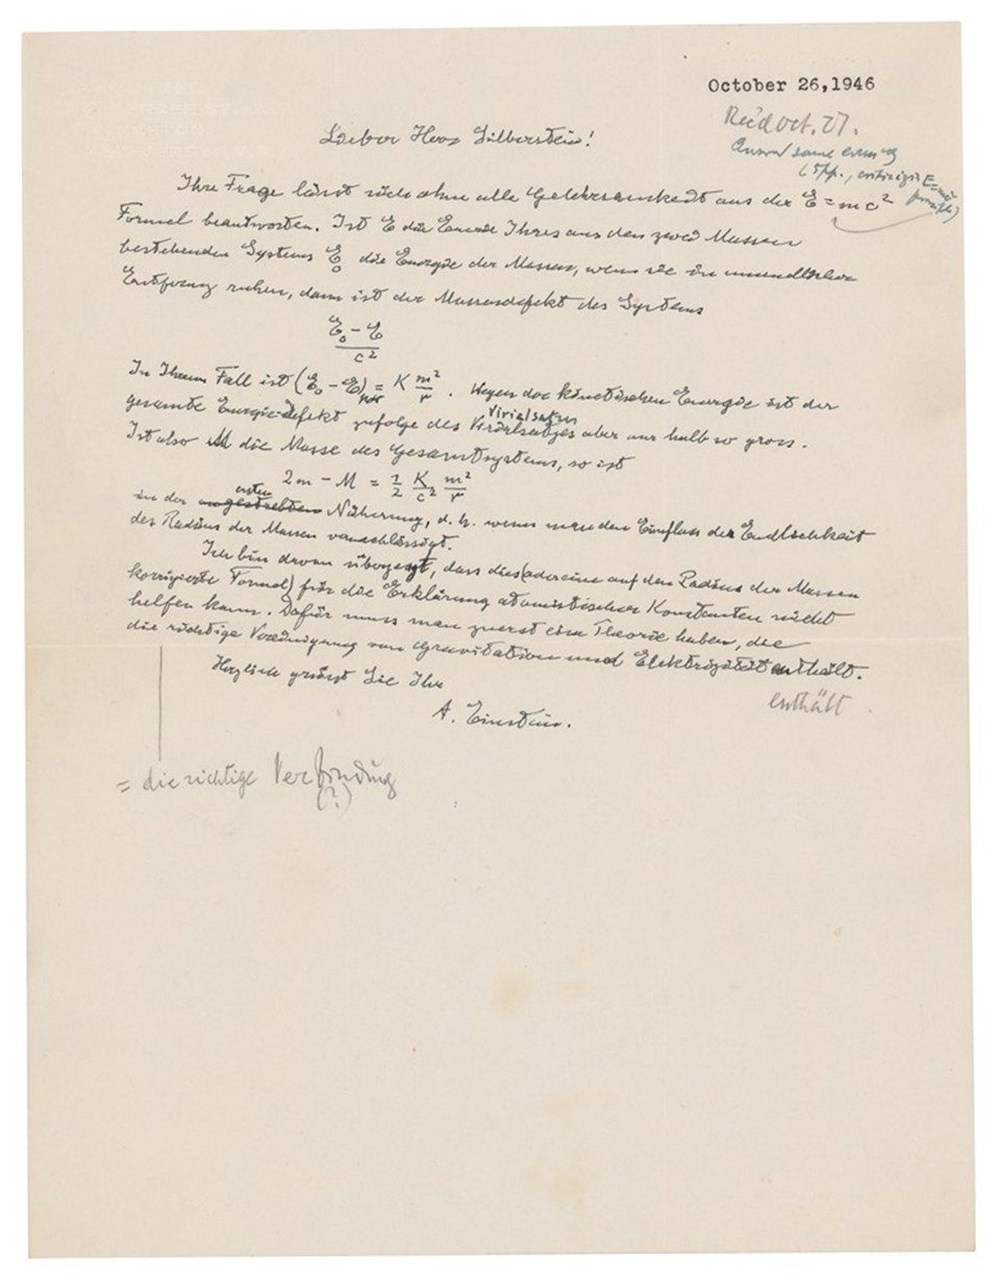 October 26,1946
Rec'd Oct. 27.
Answ'd same
(5pp., E=mc²
Lieber Herr Silberstein!
Ihre Frage lässt sich ohne alle Gelehrsamkeit aus der E = mc²
Formel beantworten. Ist E die Energie Ihres aus den zwei Massen
bestehenden Systems E₀ die Energie der Massen, wenn sie in unendlicher
Entfernung ruhen, dann ist der Massendefekt des Systems
(E₀ - E)/c²
In Ihrem Fall ist (E₀ - E) = K m²/r . Wegen der kinetischen Energie ist der
Virialsatzes
gesamte Energie-Defekt zufolge des Virialsatzes aber nur halb so gross.
Ist also M die Masse des Gesamtsystems, so ist
2m - M = 1/2 K/c² m²/r
ersten
in der Näherung, d. h. wenn man den Einfluss der Endlichkeit
des Radius der Massen vernachlässigt.
Ich bin davon überzeugt, dass dies (oder eine auf den Radius der Massen
korrigierte Formel) für die Erklärung atomistischer Konstanten nicht
helfen kann. Dafür muss man zuerst eine Theorie haben, die
die richtige Vereinigung von Gravitation und Elektrizität enthält.
Herzlich grüsst Sie Ihr
enthält
A. Einstein.
= die richtige Verbindung
(?)